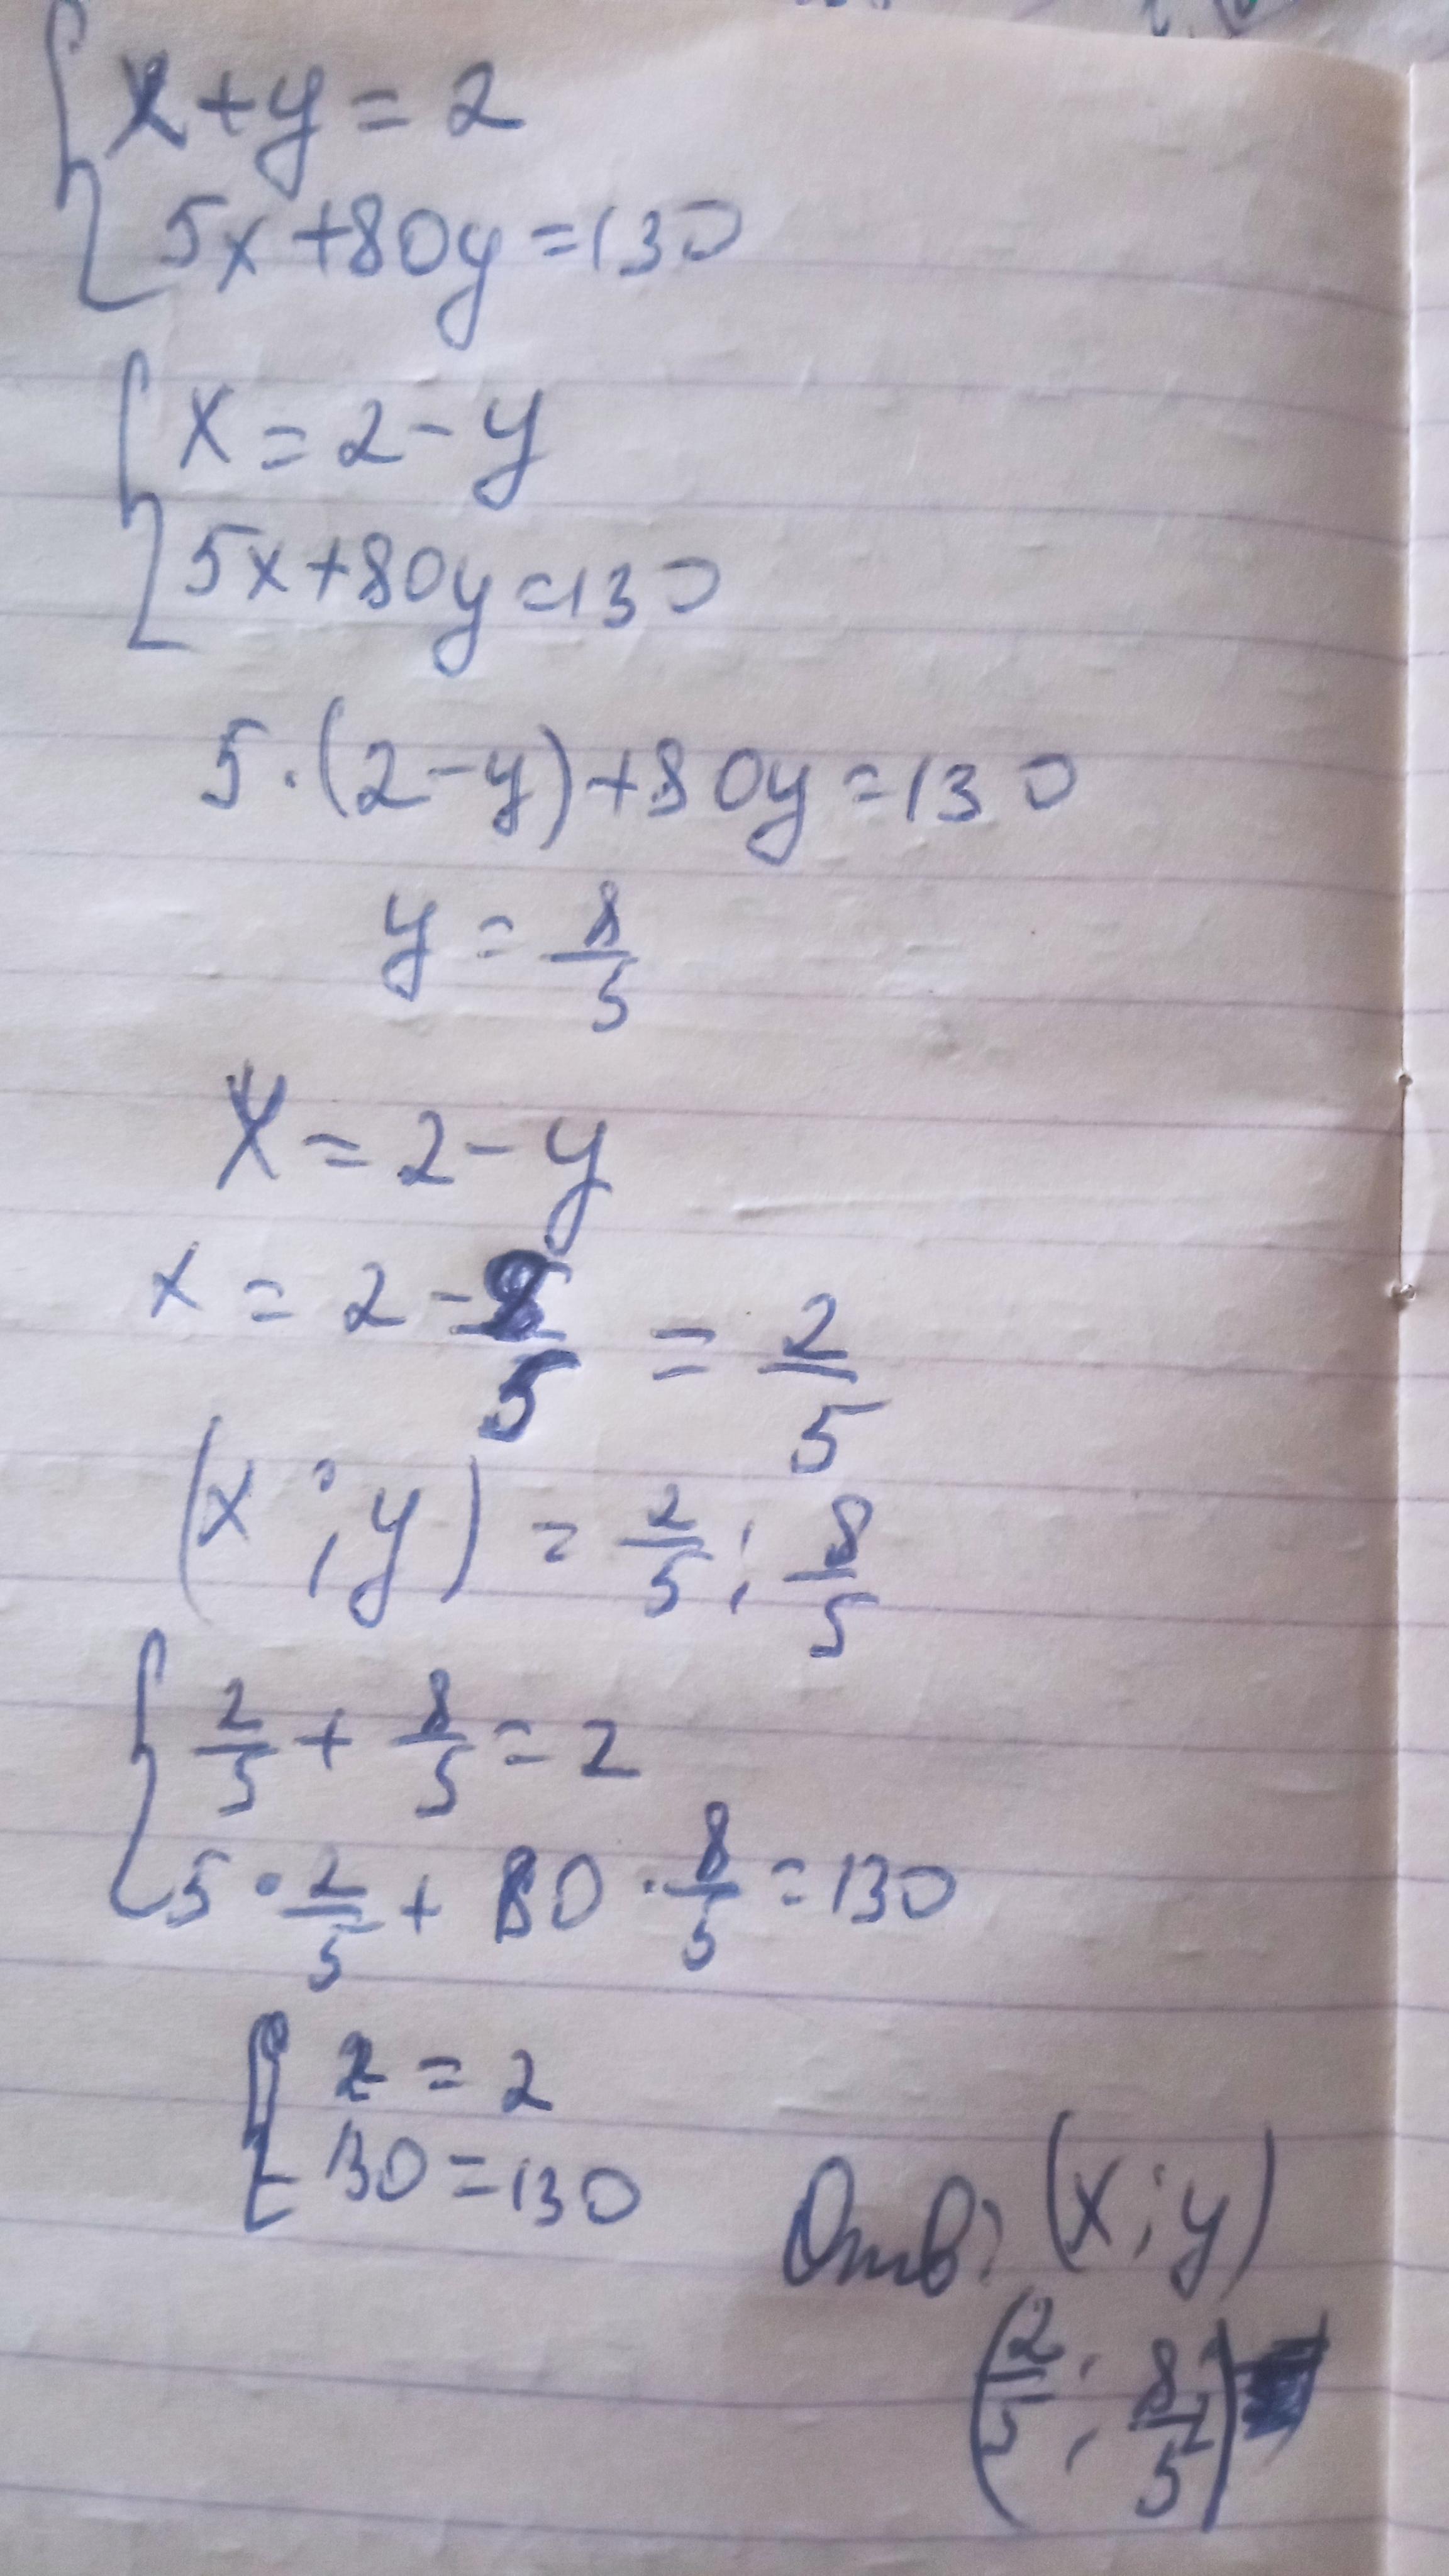 x+y=2
5x+80y=130
x=2-y
5x+80y=130
5·(2-y)+80y=130
y=8/5
x=2-y
x=2-8/5=2/5
(x;y)=2/5;8/5
2/5+8/5=2
5·2/5+80·8/5=130
2=2
130=130
Отв: (x;y)
(2/5;8/5)